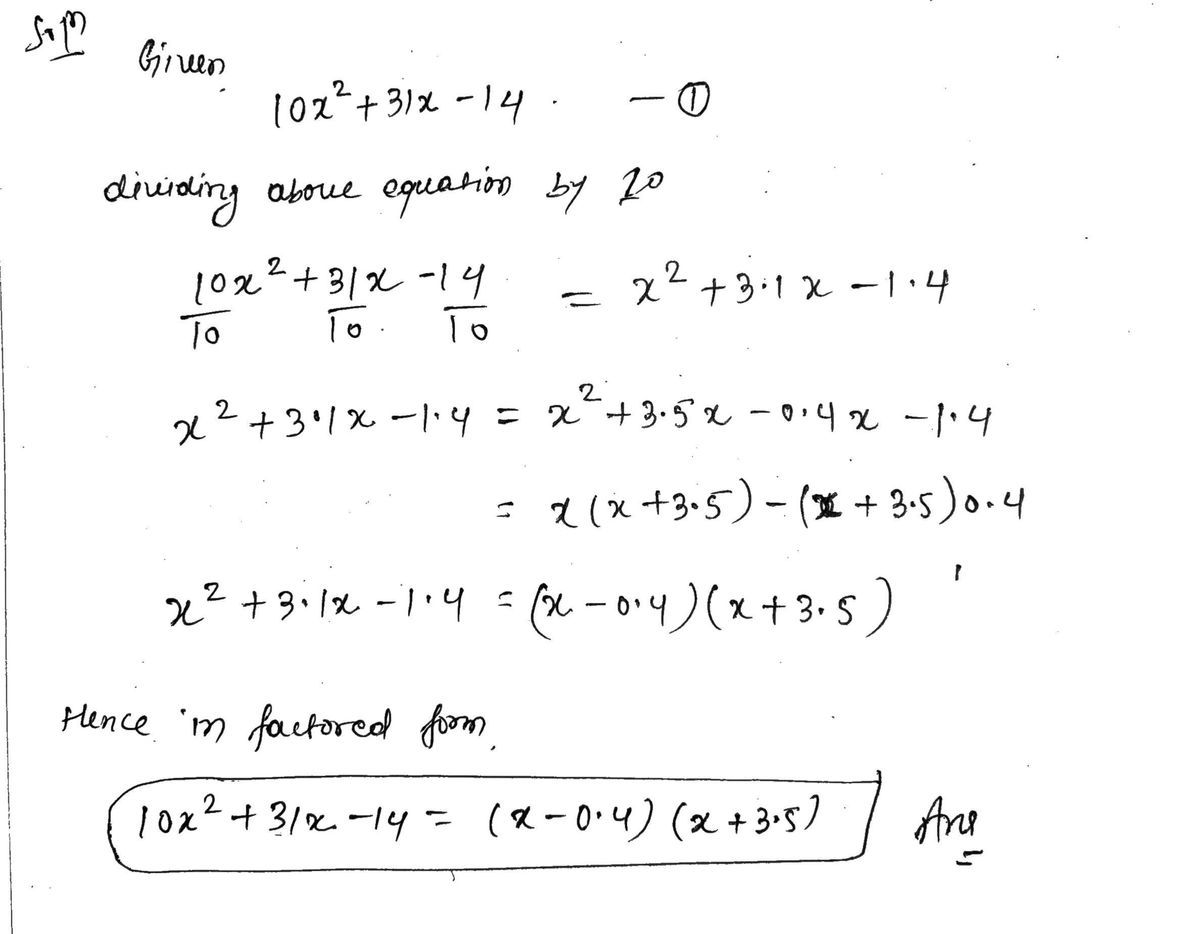 Solⁿ
Given
10x² + 31x - 14 . — ①
dividing above equation by 10
10x²/10 + 31x/10 - 14/10 = x² + 3.1x - 1.4
x² + 3.1x - 1.4 = x² + 3.5x - 0.4x - 1.4
= x(x + 3.5) - (x + 3.5)0.4
x² + 3.1x - 1.4 = (x - 0.4)(x + 3.5)
Hence in factored form
10x² + 31x - 14 = (x - 0.4)(x + 3.5) Ans